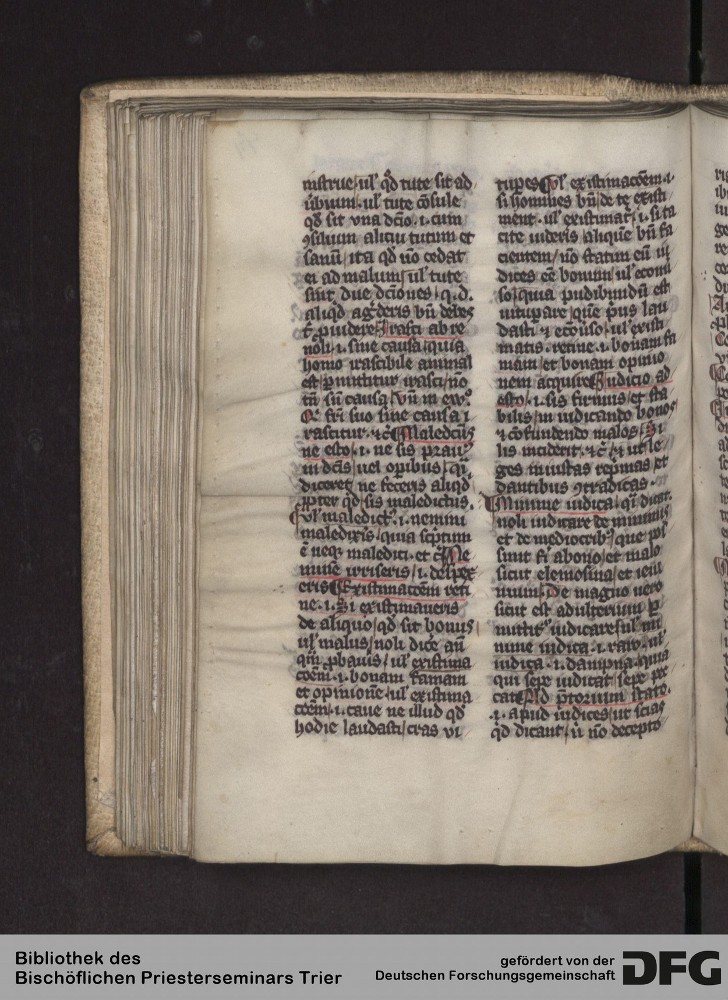 instrue ul' qd tute sit ad
ubium. ul' tute ꝯsule
qd sit vna dcio .i. cum
ꝯsilium alicui tutum et
sanū ita qd nō cedat
ei ad malum ul' tute
sint due dciones q. d.
aliqd agderis bn̄ debes
p̄uidere Irasci ab re
noli .i. sine causa quia
homo irascibile animal
est p̄mittitur irasci nō
tn̄ sn̄ causa
fri suo sine causa i
rascitur. ⁊c̄ Maledicus
ne esto .i. ne sis prauus
in dcīs uel opibus qi
diceret ne feceris aliqd
ꝓpter qd sis maledictus.
Vl' maledict' .i. nemini
maledixeris quia sc̄ptum
ē neqꝫ maledici. et c̄ Ne
mine irriseris .i. despex
eris Existimacōem reti
ne .i. Si existimaueris
de aliquo qd sit bonus
ul' malus noli dicē an̄
qm̄ ꝓbauis ul' existima
cōem .i. bonam famam
et opinionē ul' existima
cōem .i. caue ne illud qd
hodie laudasti cras vi
tupes Vl' existimacōem .i.
si homines bn̄ de te existi
ment. ul' existimar̄ .i. si ta
cite uideris aliquē bn̄ fa
cientem nō statim eū in
dices eē bonum ul' econu
so quia pudibundū est
uitupare quē p̄us lau
dasti ⁊ ecōuso ul' existi
matis. retine .i. bonam fa
mam et bonam opinio
nem acquire Iudicio ad
esto .i. sis firmus et sta
bilis in iudicando bonos
⁊ cōfundendo malos Si
lis inciderit. ⁊c̄ ut le
ges iniustas repmas et
dantibus ꝯtradicas.
Minime iudica. qi dicat
noli iudicare de minimis
et de mediocribꝫ que pos
sunt fi a bono et malo
sicut elemosina et ieiu
nium De magno uero
sicut est adulterium p̄
mittit' iudicare ul' mi
nime iudica .i. raro. ul'
iudica .i. dampna quia
qui sepe iudicat sepe pec
cat Ad p̄torium stato.
.i. apud iudices ut scias
qd dicant ut nō decepto
Bibliothek des
Bischöflichen Priesterseminars Trier
gefördert von der
Deutschen Forschungsgemeinschaft
DFG